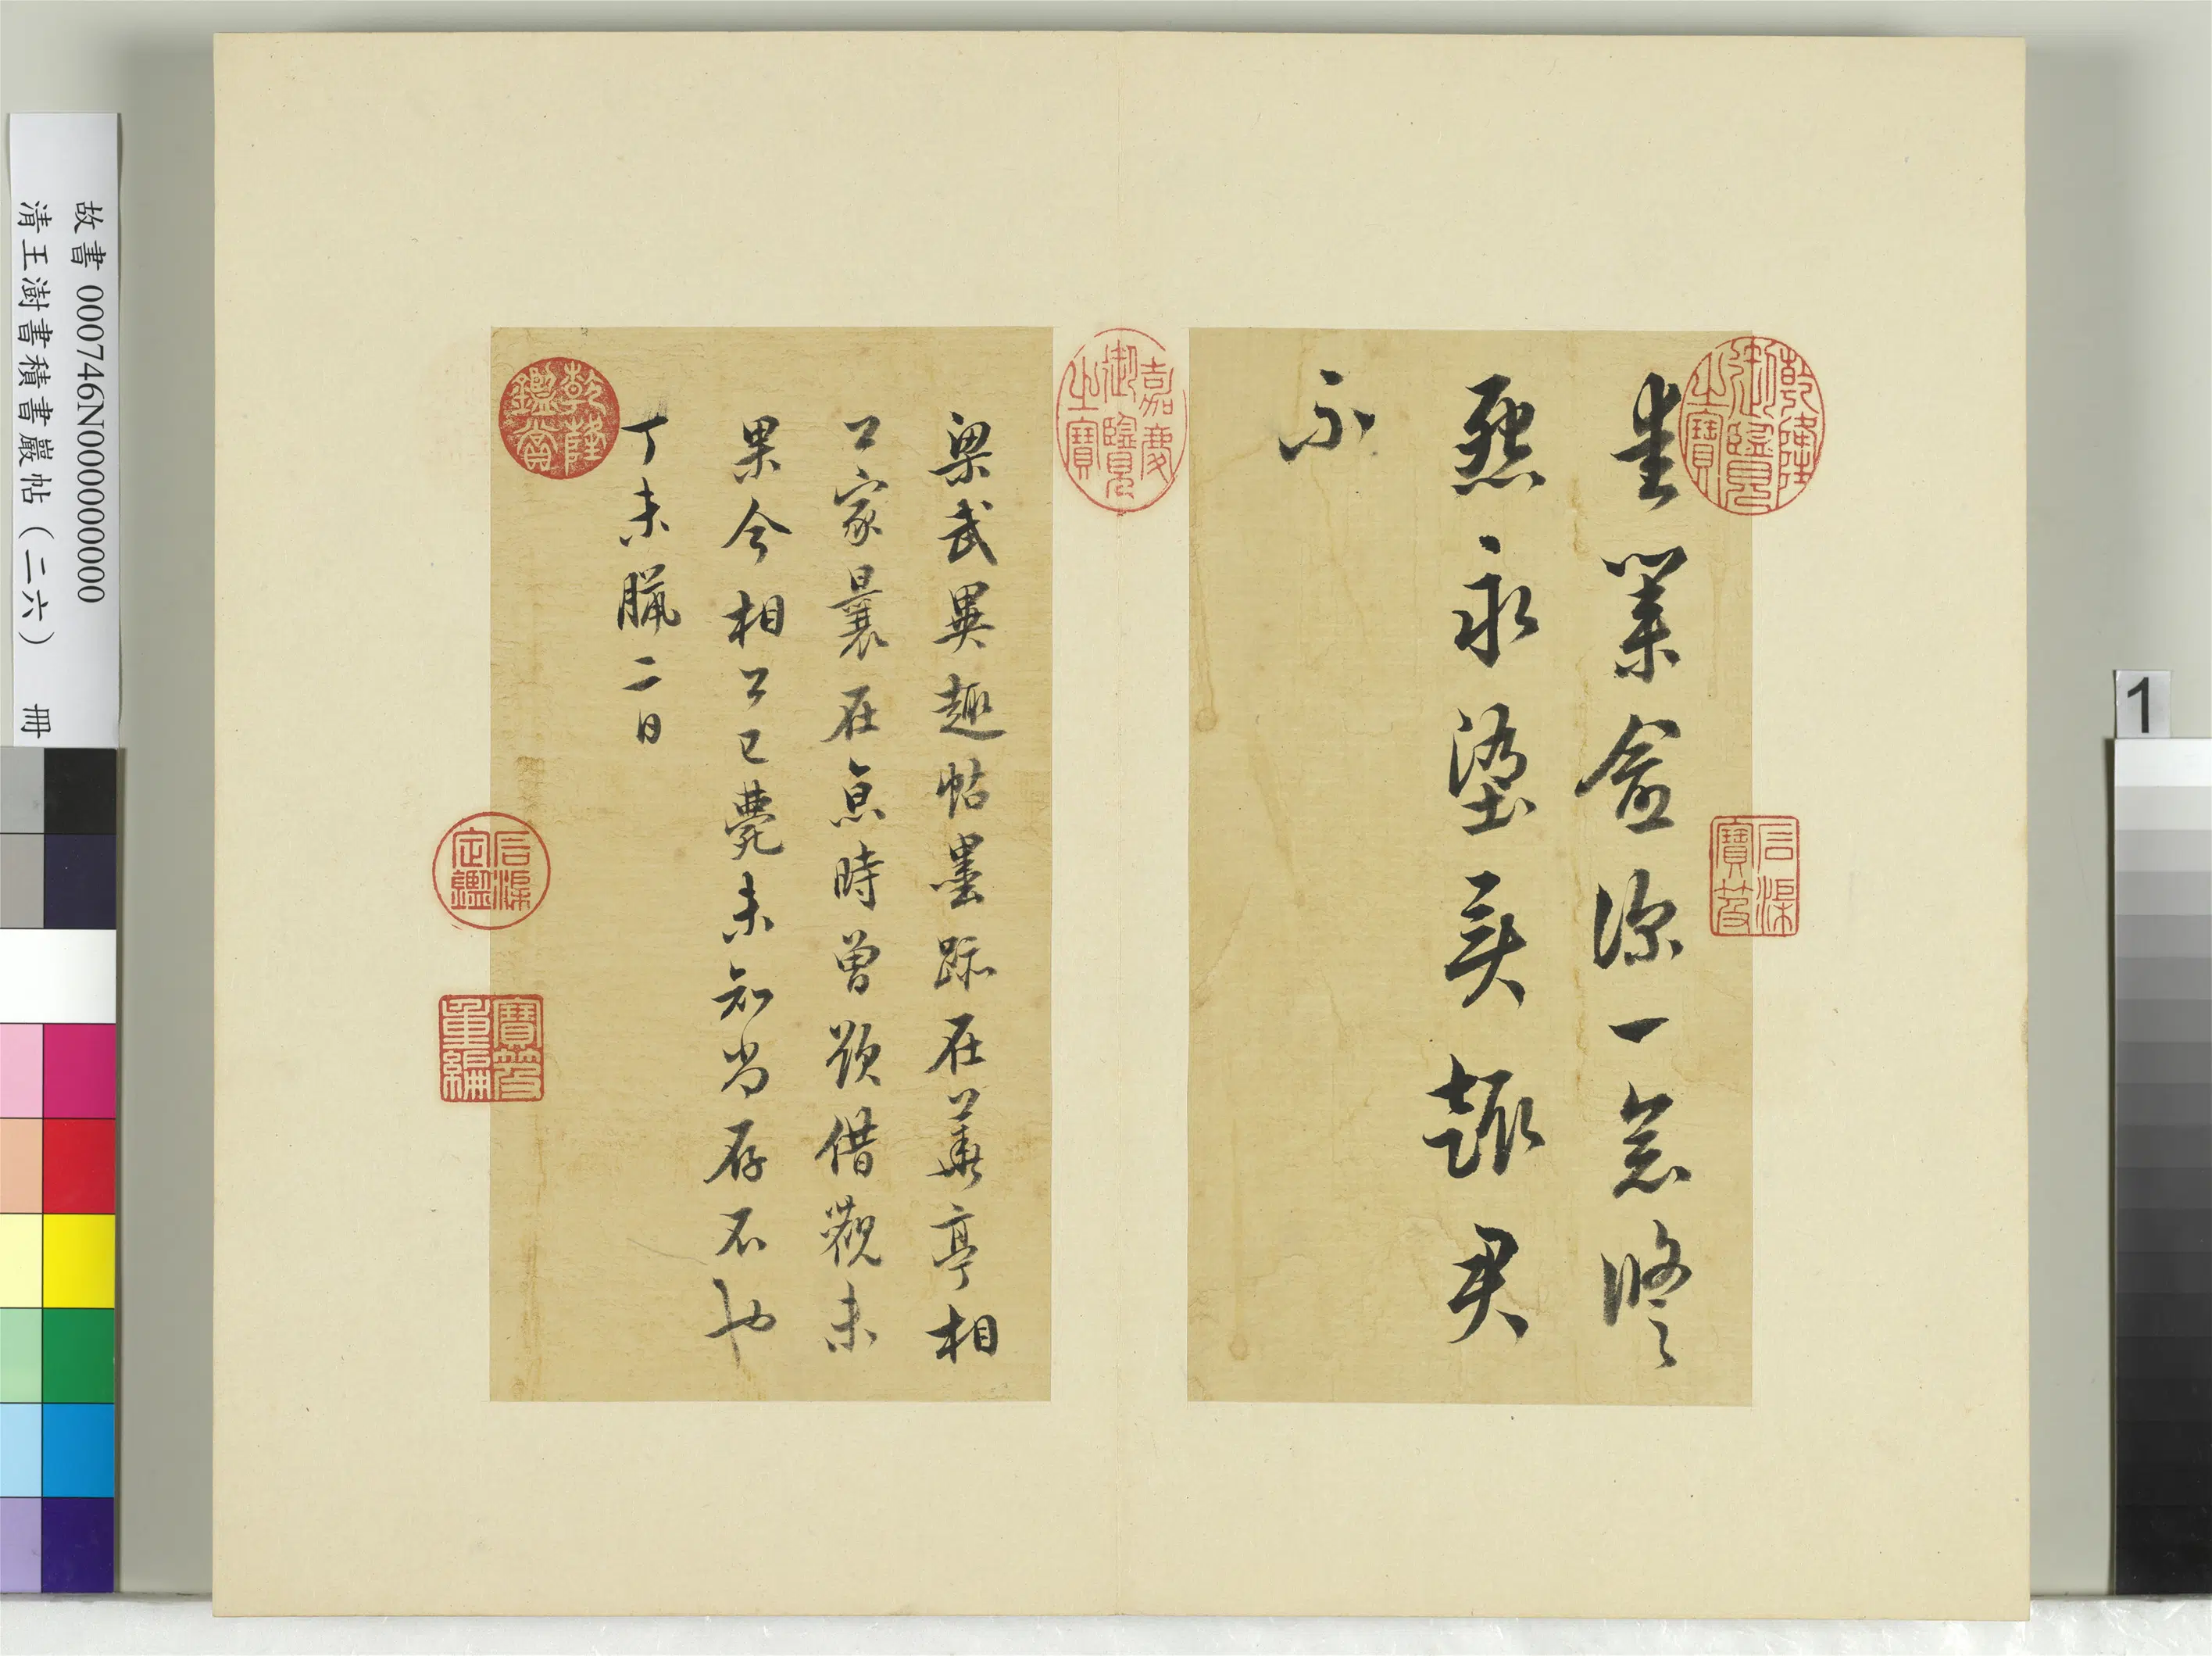 愛業愈深一念脩
怨永墮異趣君
不
梁武異趣帖墨跡在華亭相
公家曩在京時曾欲借觀未
果今相公已薨未知尚存不也
丁未臘二日
乾隆御覽之寶
石渠寶笈
嘉慶御覽之寶
乾隆鑑賞
石渠定鑑
寶笈重編
故書 000746N000000000
清王澍書積書巖帖(二六) 冊
1